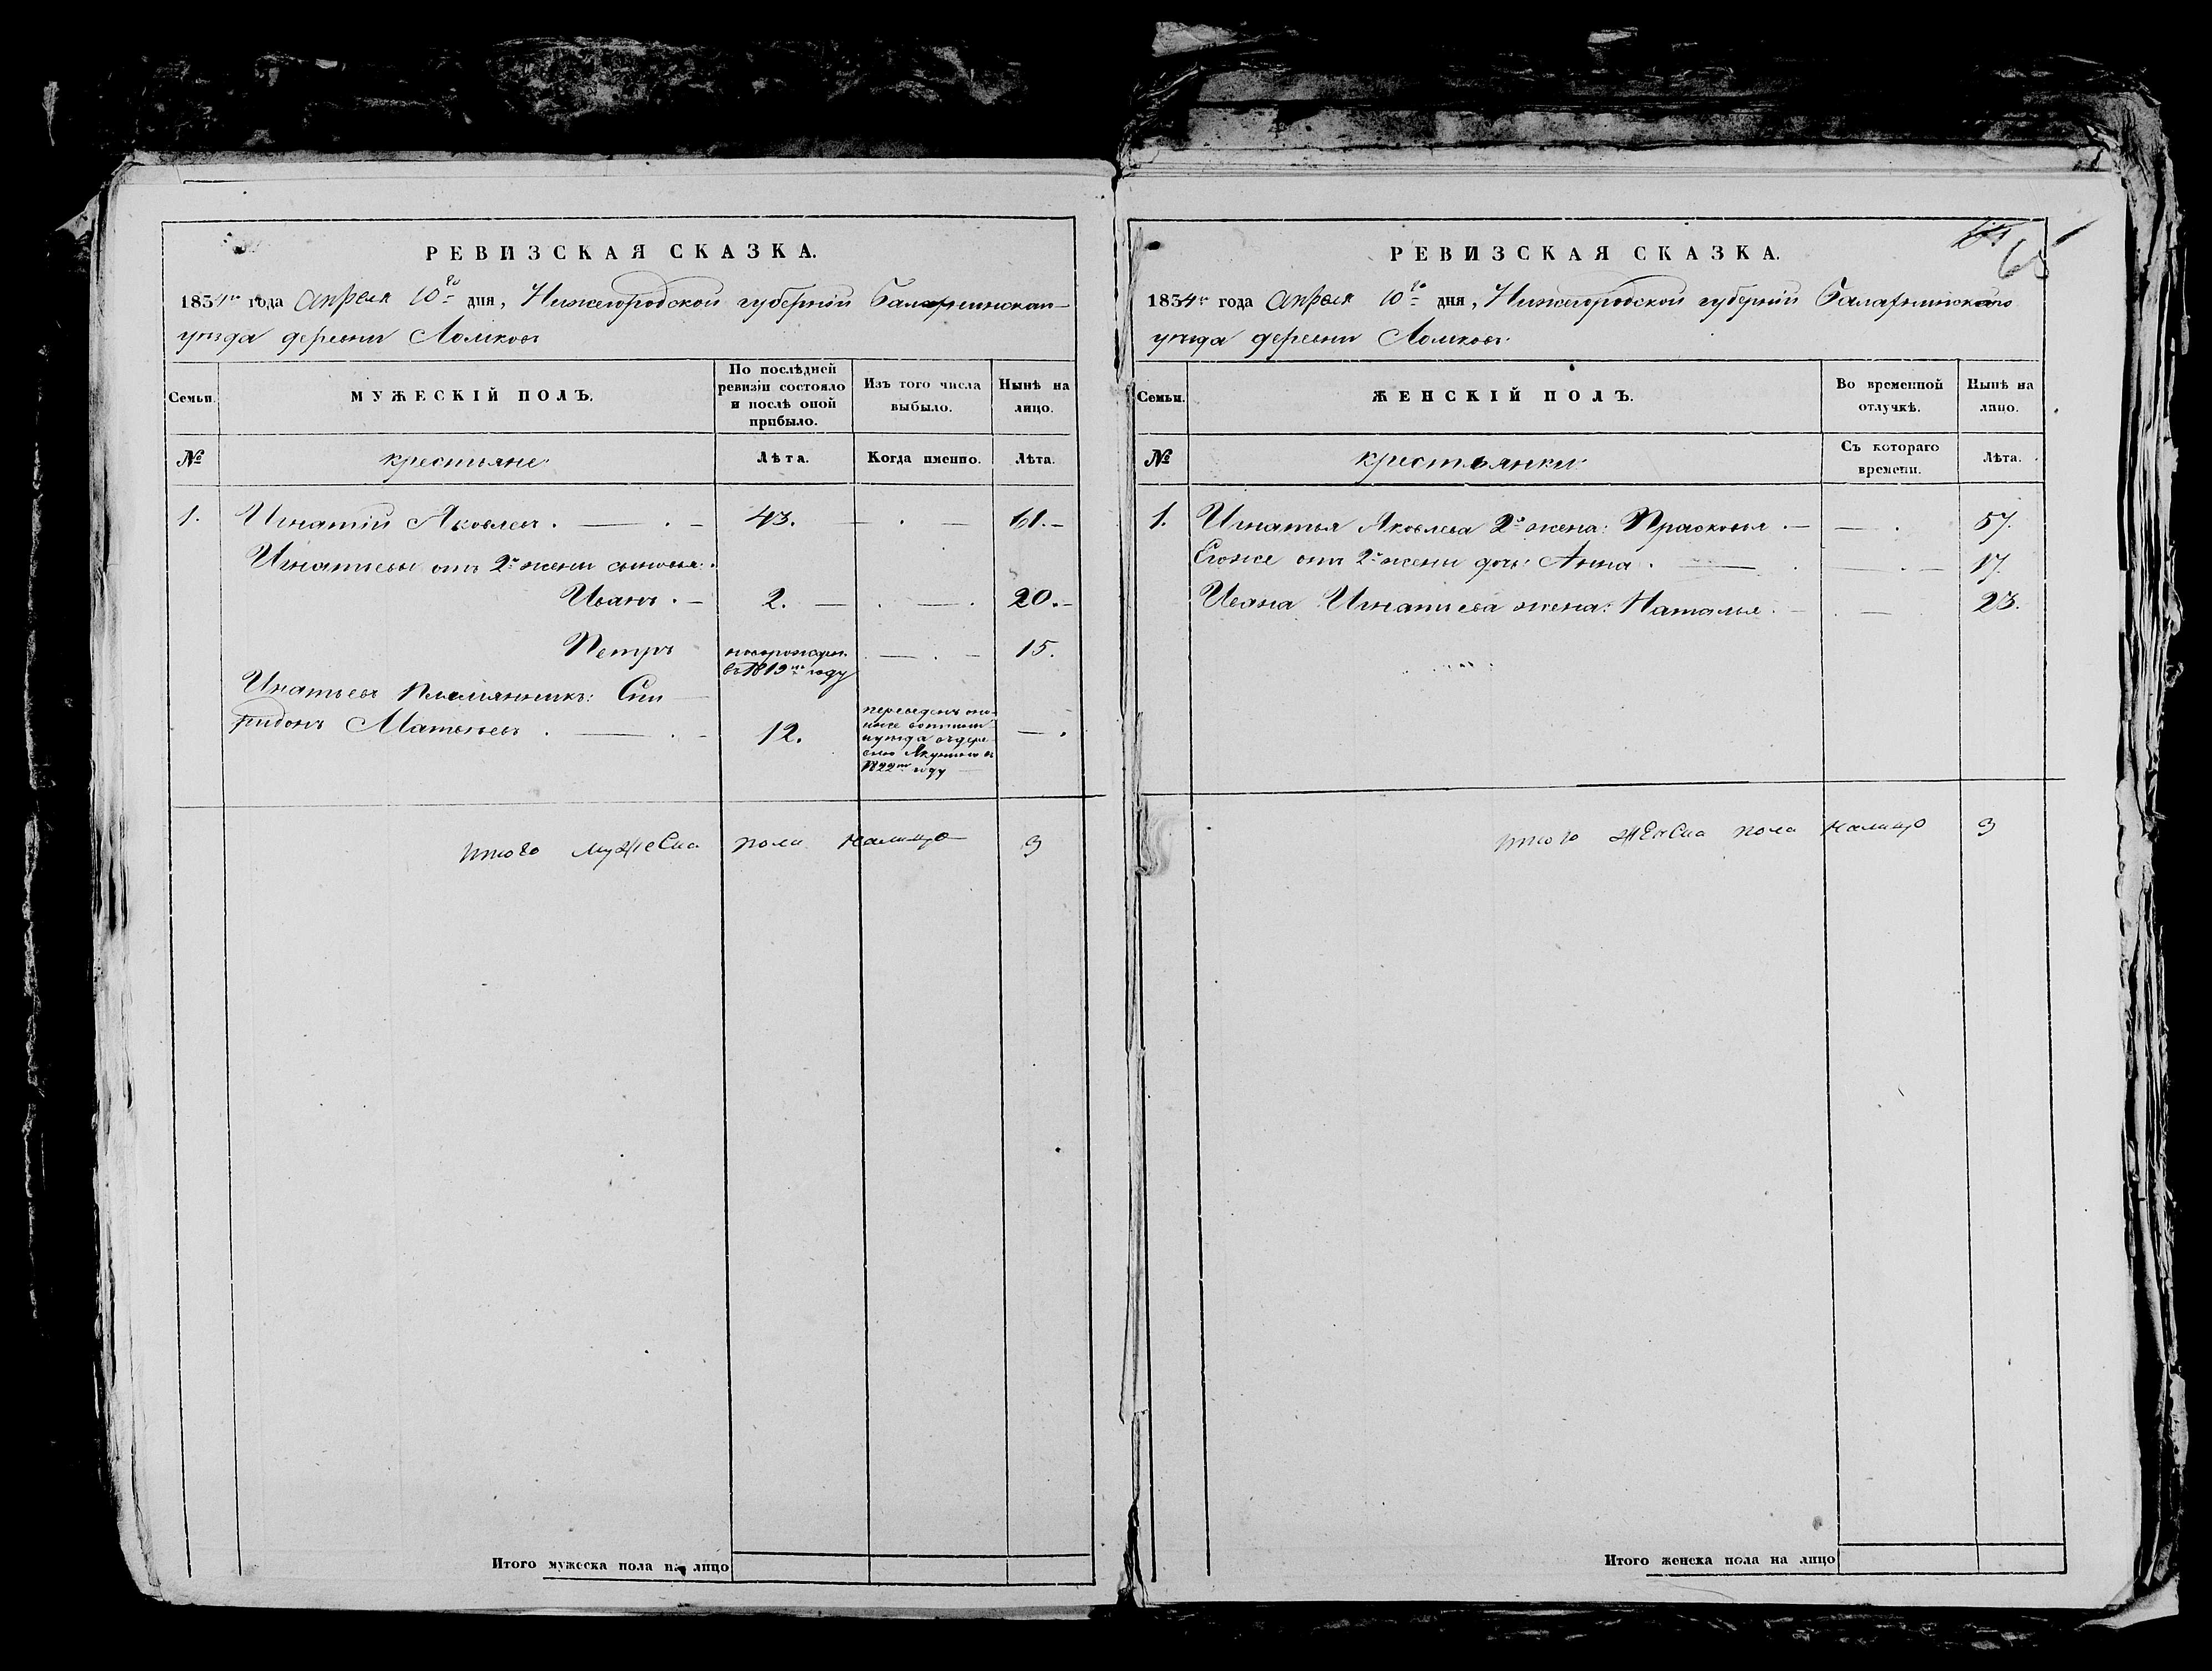 РЕВИЗСКАЯ СКАЗКА.
1834го года апреля 10го дня, Нижегородской губернии Балахнинскаго
уезда деревни Ломковъ
Семьи.
МУЖЕСКІЙ ПОЛЪ.
По послѣдней ревизіи состояло и послѣ оной прибыло.
Изъ того числа выбыло.
Нынѣ на лицо.
№
крестьяне
Лѣта.
Когда именно.
Лѣта.
1. Игнатій Яковлевъ. 43. 61.
Игнатьевы отъ 2й жены сыновья:
Иванъ. 2. 20.
Петръ новорожден. въ 1819мъ году 15.
Игнатьевъ племянникъ: Спи
ридонъ Матвѣевъ. 12.
переведенъ
уезда въ дере
вню в
1822мъ году
итого мужеска пола налицо 3
Итого мужеска пола на лицо
65
РЕВИЗСКАЯ СКАЗКА.
1834го года апреля 10го дня, Нижегородской губернии Балахнинскаго
уезда деревни Ломковъ.
Семьи.
ЖЕНСКІЙ ПОЛЪ.
Во временной отлучкѣ.
Нынѣ на лицо.
№
крестьянки
Съ котораго времени.
Лѣта.
1. Игнатья Яковлева 2я жена: Прасковья. 57.
Егоже отъ 2й жены дочь: Анна. 17.
Ивана Игнатьева жена: Наталья. 23.
итого женска пола налицо 3
Итого женска пола на лицо